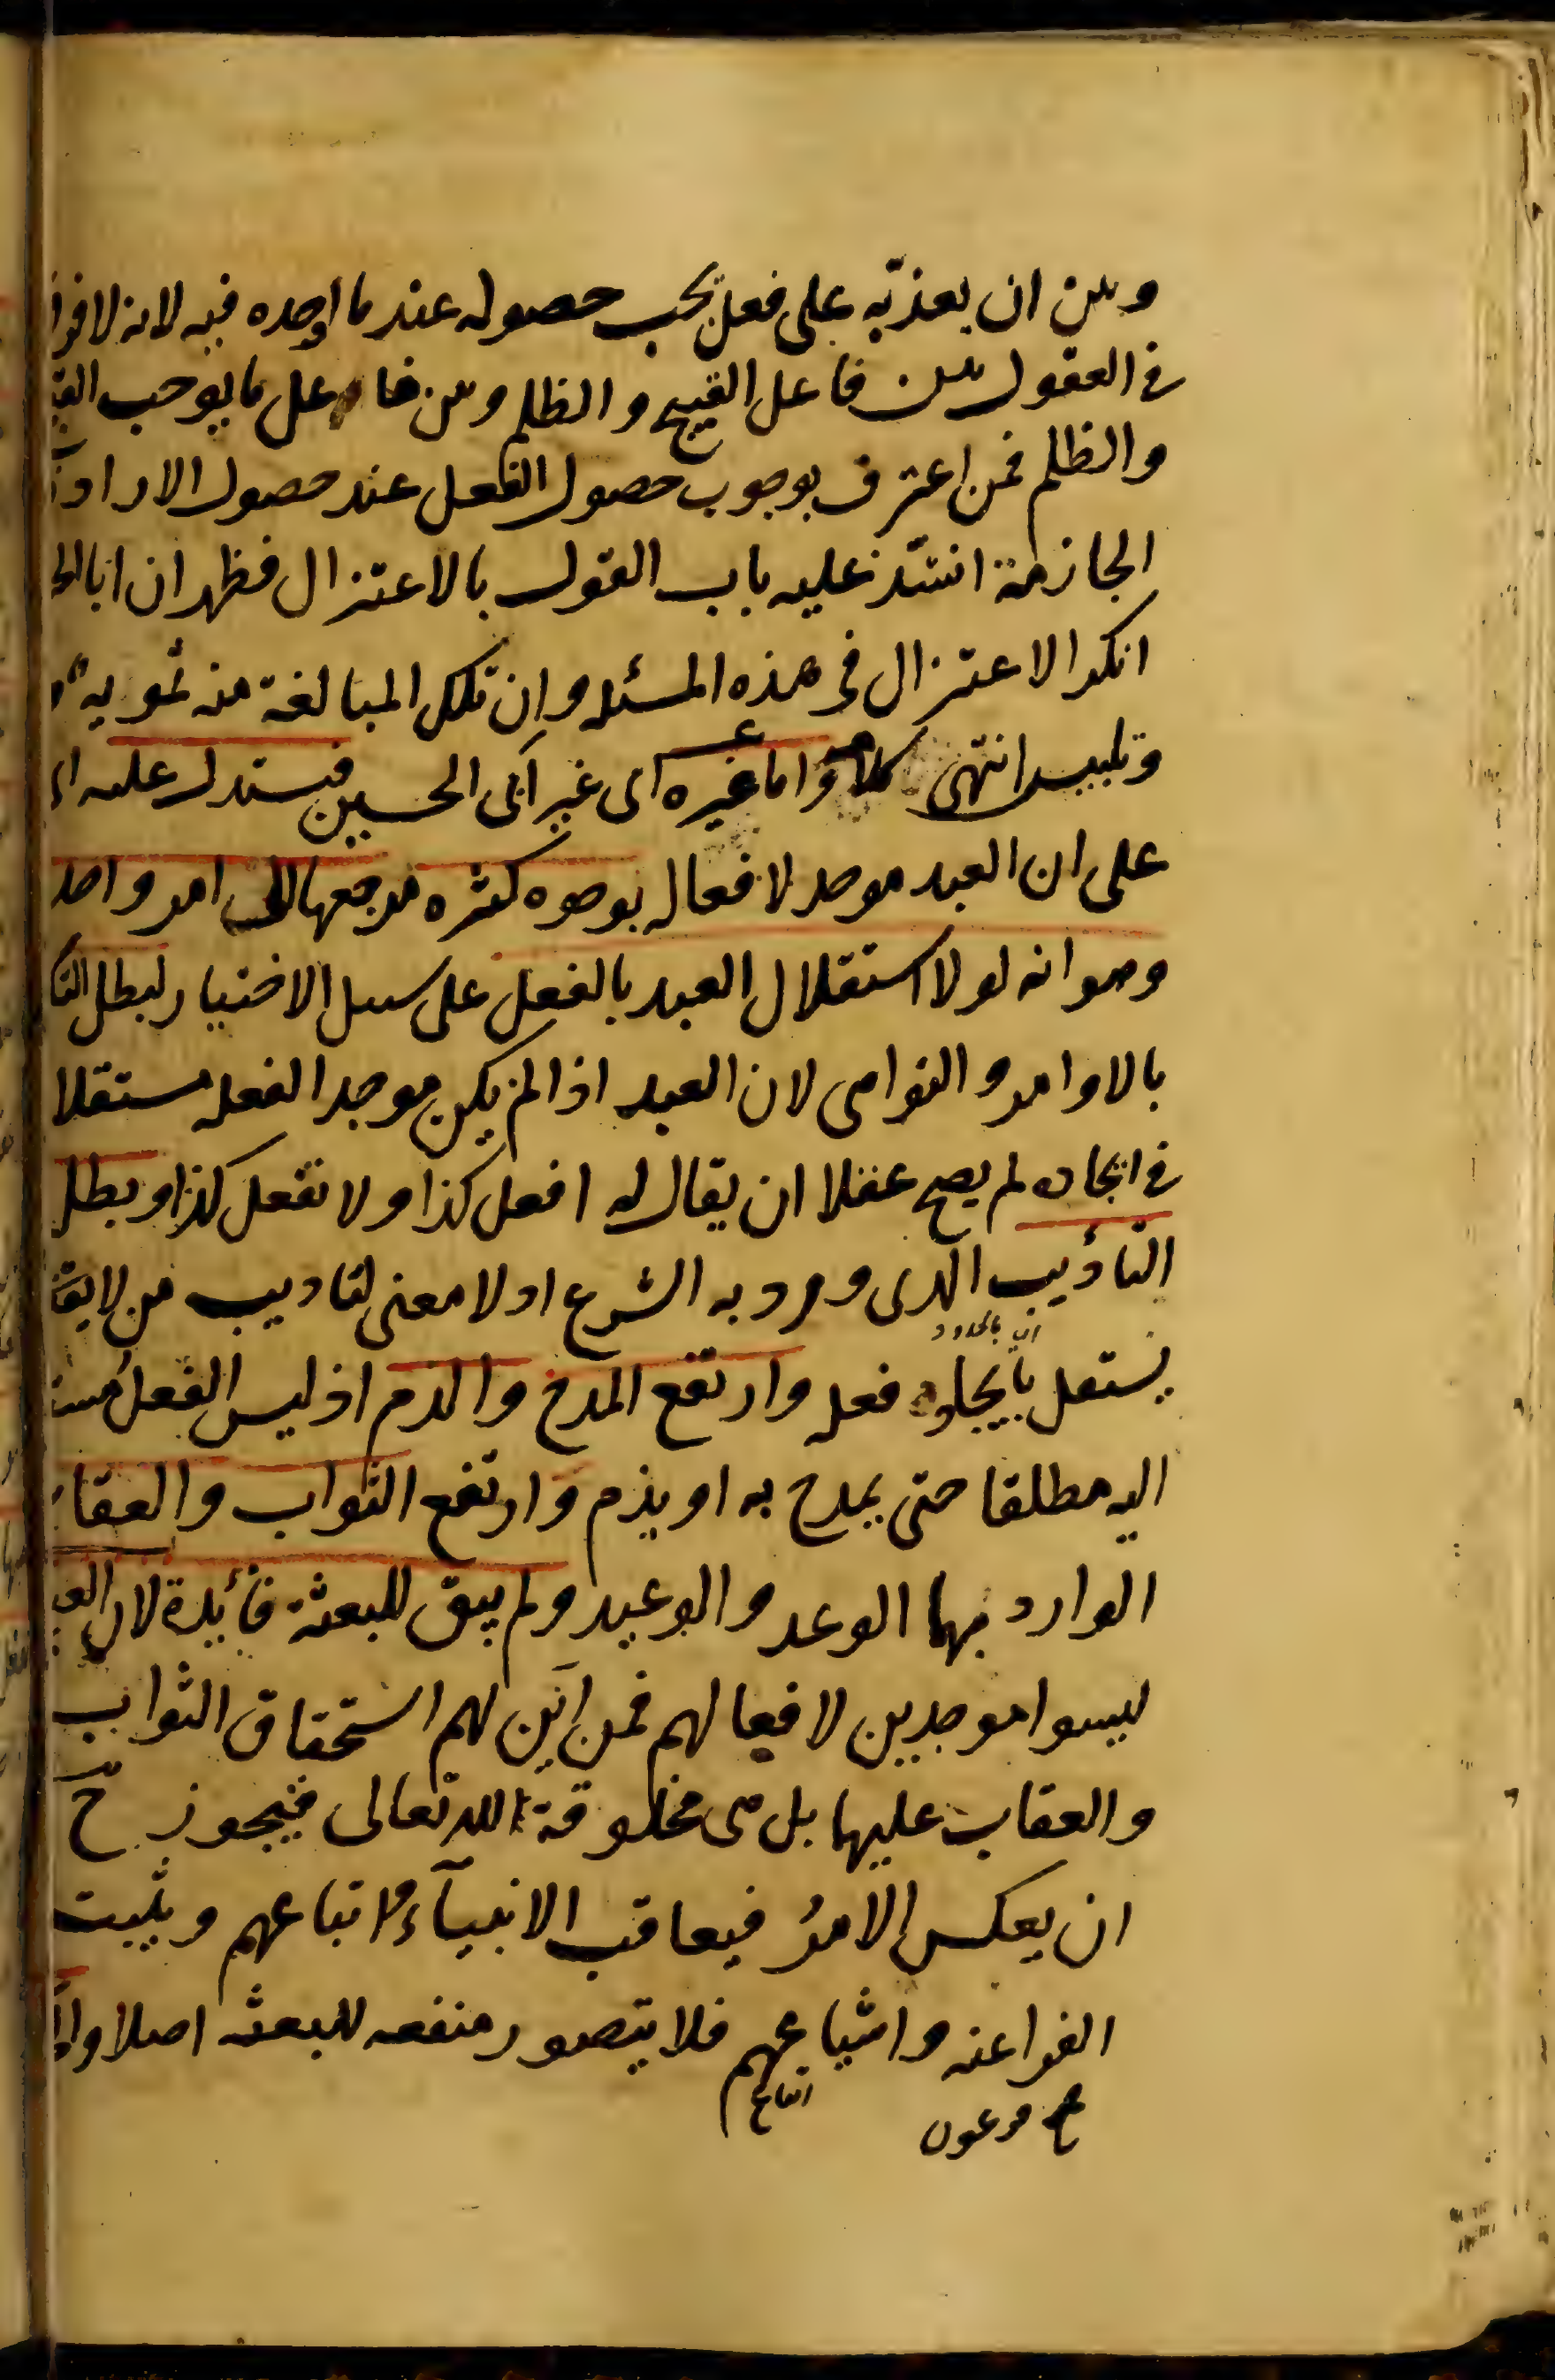 وبين ان يعذبه على فعل يجب حصوله عند ما اوجده فيه لانه لا فرق
في العقول بين فاعل القبيح والظلم وبين فاعل ما يوجب القبيح
والظلم فمن اعترف بوجوب حصول الفعل عند حصول الارادة
الجازمة انسد عليه باب القول بالاعتزال فظهر ان ابا الحسين
انكر الاعتزال في هذه المسئله وان تلك المبالغة منه تمويه
وتلبيس انتهى كلامه واما غيره اى غير ابى الحسين فيستدل عليه اى
على ان العبد موجد لافعاله بوجوه كثيره مرجعها الى امر واحد
وهو انه لولا استقلال العبد بالفعل على سبيل الاختيار لبطل
بالاوامر والنواهى لان العبد اذا لم يكن موجدا لفعله مستقلا
في ايجاده لم يصح عقلا ان يقال له افعل كذا ولا تفعل كذا وبطل
التأديب الذى ورد به الشرع اذ لا معنى لتاديب من لا
اى بالحدود
يستقل بايجاد فعله وارتفع المدح والذم اذ ليس الفعل
اليه مطلقا حتى يمدح به او يذم وارتفع الثواب والعقاب
الوارد بهما الوعد والوعيد ولم يبق للبعثة فائدة لان
ليسوا موجدين لافعالهم فمن اين لهم استحقاق الثواب
والعقاب عليها بل هى مخلوقة لله تعالى فيجوز ح
ان يعكس الامر فيعاقب الانبيآء واتباعهم ويثيب
الفراعنه واشياعهم فلا يتصور منفعه للبعثه اصلا
ج فرعون اتباع